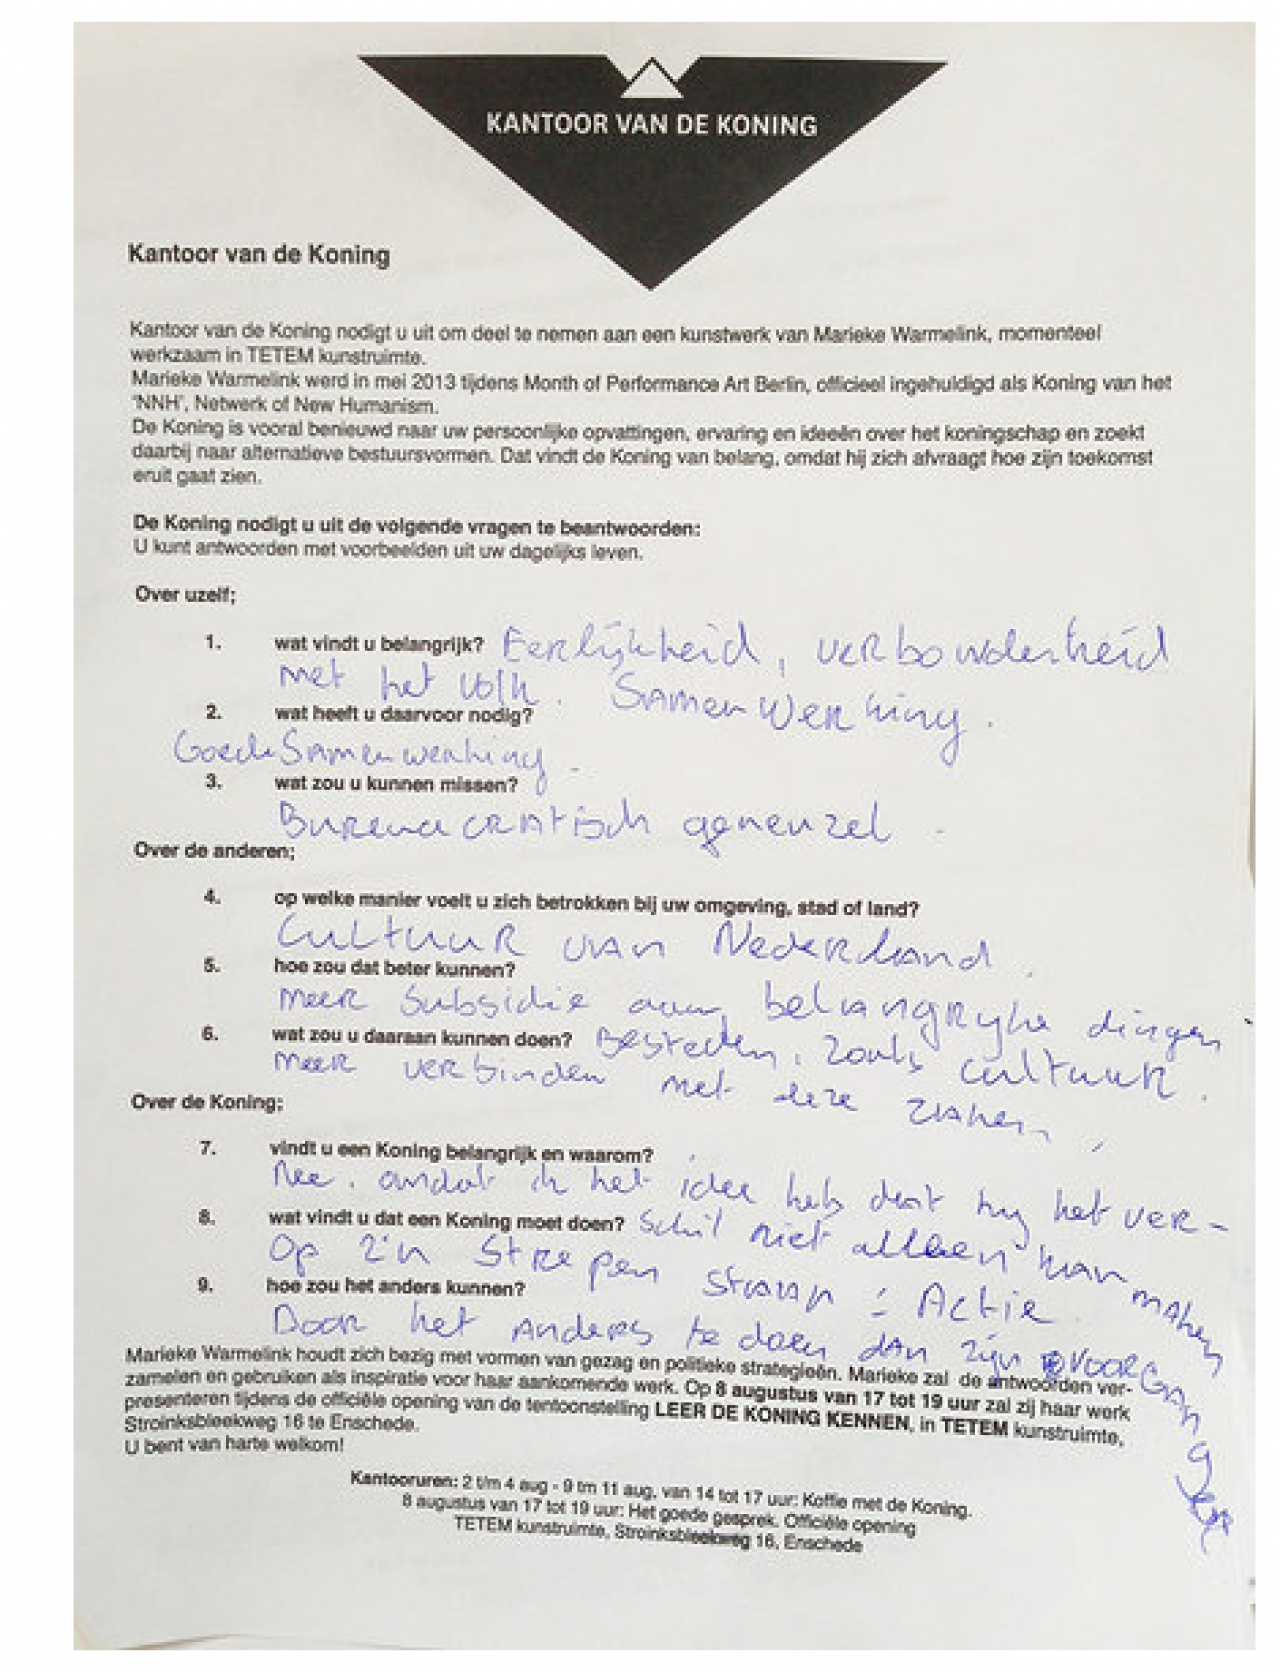 KANTOOR VAN DE KONING
Kantoor van de Koning
Kantoor van de Koning nodigt u uit om deel te nemen aan een kunstwerk van Marieke Warmelink, momenteel
werkzaam in TETEM kunstruimte.
Marieke Warmelink werd in mei 2013 tijdens Month of Performance Art Berlin, officieel ingehuldigd als Koning van het
'NNH', Netwerk of New Humanism.
De Koning is vooral benieuwd naar uw persoonlijke opvattingen, ervaring en ideeën over het koningschap en zoekt
daarbij naar alternatieve bestuursvormen. Dat vindt de Koning van belang, omdat hij zich afvraagt hoe zijn toekomst
eruit gaat zien.
De Koning nodigt u uit de volgende vragen te beantwoorden:
U kunt antwoorden met voorbeelden uit uw dagelijks leven.
Over uzelf;
1. wat vindt u belangrijk? Eerlijkheid, verbondenheid
met het volk. Samenwerking.
2. wat heeft u daarvoor nodig?
Goede Samenwerking.
3. wat zou u kunnen missen?
Bureaucratisch geneuzel
Over de anderen;
4. op welke manier voelt u zich betrokken bij uw omgeving, stad of land?
Cultuur van Nederland.
5. hoe zou dat beter kunnen?
Meer subsidie aan belangryke dingen
6. wat zou u daaraan kunnen doen? Besteden, zoals cultuur.
Meer verbinden met deze zaken,
Over de Koning;
7. vindt u een Koning belangrijk en waarom?
Nee, omdat ik het idee heb dat hy het ver-
8. wat vindt u dat een Koning moet doen? Schil niet alleen kan maken
Op z'n strepen staan = Actie.
9. hoe zou het anders kunnen?
Door het anders te doen dan zijn voorgangers
Marieke Warmelink houdt zich bezig met vormen van gezag en politieke strategieën. Marieke zal de antwoorden ver-
zamelen en gebruiken als inspiratie voor haar aankomende werk. Op 8 augustus van 17 tot 19 uur zal zij haar werk
presenteren tijdens de officiële opening van de tentoonstelling LEER DE KONING KENNEN, in TETEM kunstruimte,
Stroinksbleekweg 16 te Enschede.
U bent van harte welkom!
Kantooruren: 2 t/m 4 aug - 9 tm 11 aug, van 14 tot 17 uur: Koffie met de Koning.
8 augustus van 17 tot 19 uur: Het goede gesprek. Officiële opening
TETEM kunstruimte, Stroinksbleekweg 16, Enschede